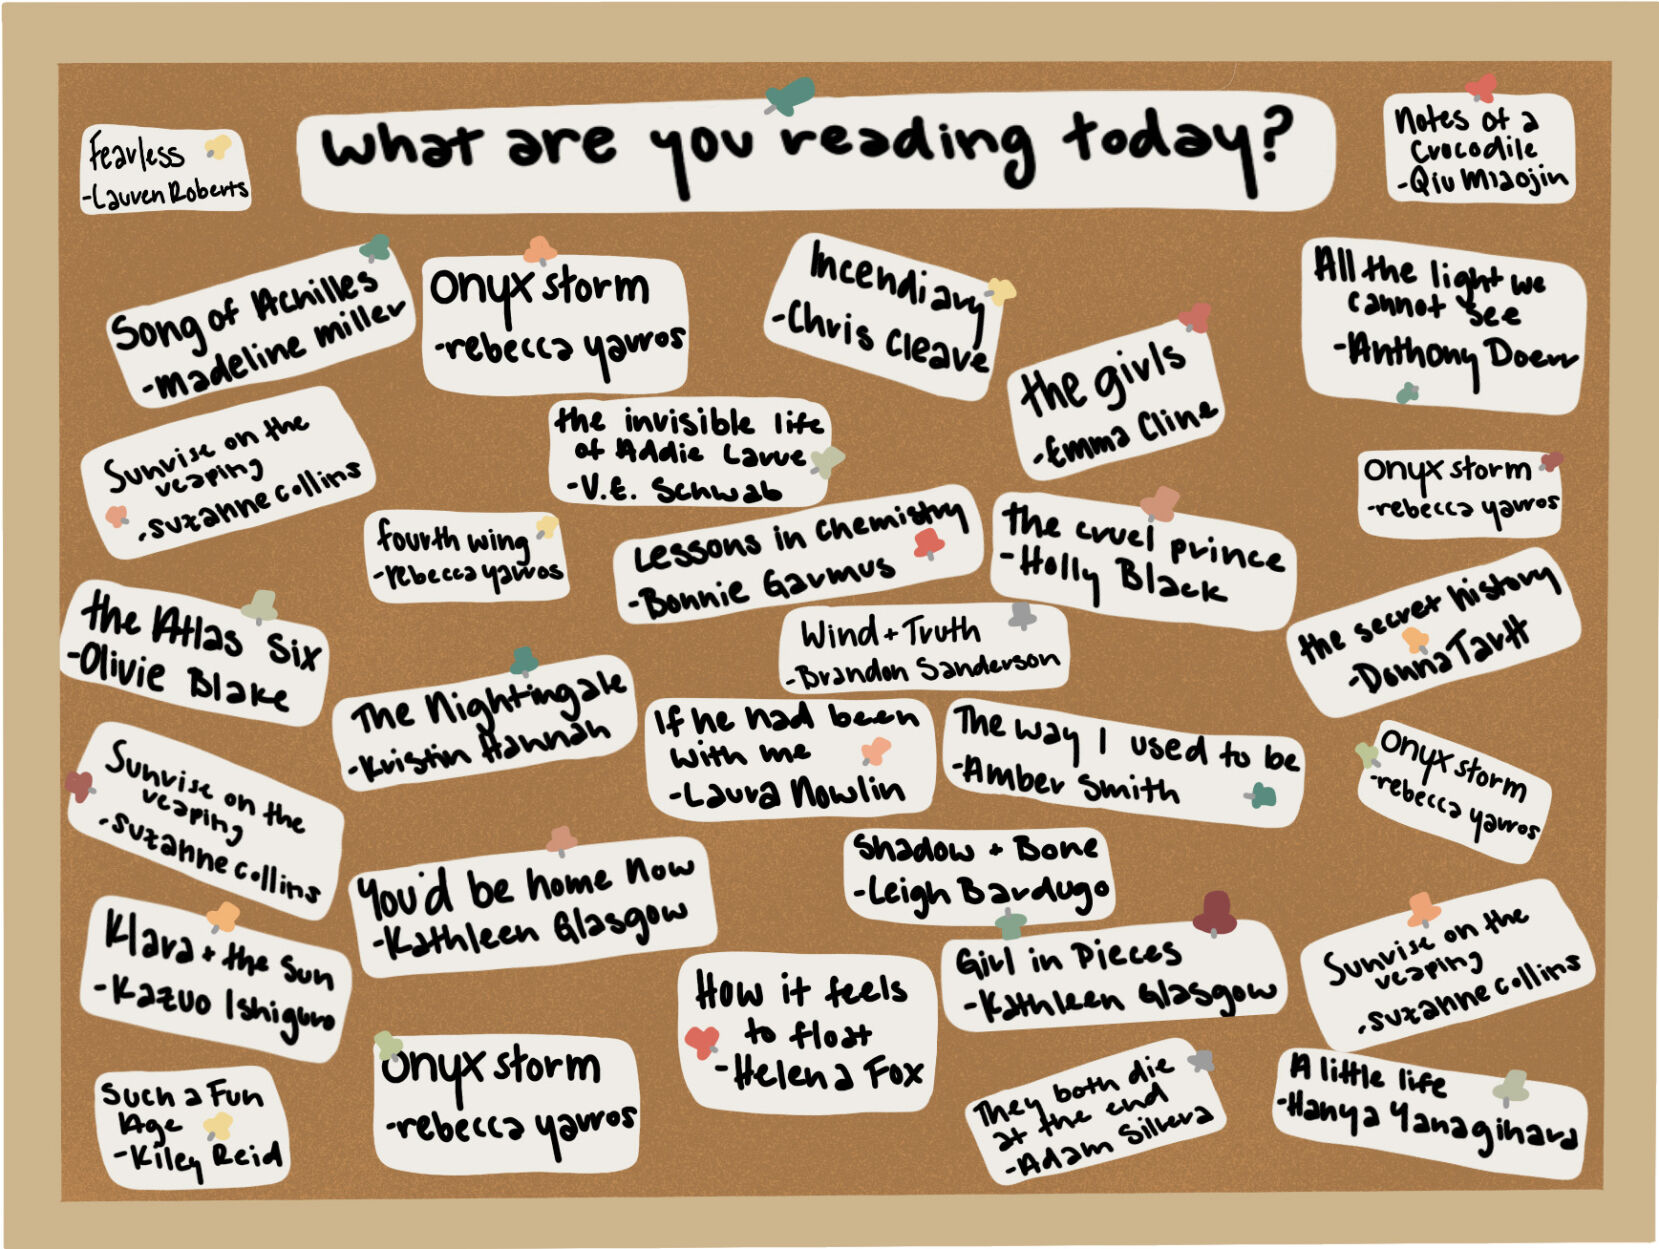 What are you reading today?
Fearless
-Lauren Roberts
Notes of a
Crocodile
-Qiu Miaojin
Song of Achilles
-madeline miller
Onyx storm
-rebecca yarros
Incendiary
-Chris Cleave
the girls
-Emma Cline
All the light we
cannot see
-Anthony Doerr
Sunrise on the
reaping
-suzanne collins
the invisible life
of Addie Larue
-V.E. Schwab
Onyx storm
-rebecca yarros
fourth wing
-rebecca yarros
Lessons in chemistry
-Bonnie Garmus
the cruel prince
-Holly Black
the Atlas Six
-Olivie Blake
Wind + Truth
-Brandon Sanderson
the secret history
-Donna Tartt
The Nightingale
-Kristin Hannah
If he had been
with me
-Laura Nowlin
The way I used to be
-Amber Smith
Onyx storm
-rebecca yarros
Sunrise on the
reaping
-suzanne collins
You'd be home now
-Kathleen Glasgow
Shadow + Bone
-Leigh Bardugo
Klara + the Sun
-Kazuo Ishiguro
Girl in Pieces
-Kathleen Glasgow
Sunrise on the
reaping
-suzanne collins
How it feels
to float
-Helena Fox
Onyx storm
-rebecca yarros
Such a Fun
Age
-Kiley Reid
They both die
at the end
-Adam Silvera
A little life
-Hanya Yanagihara